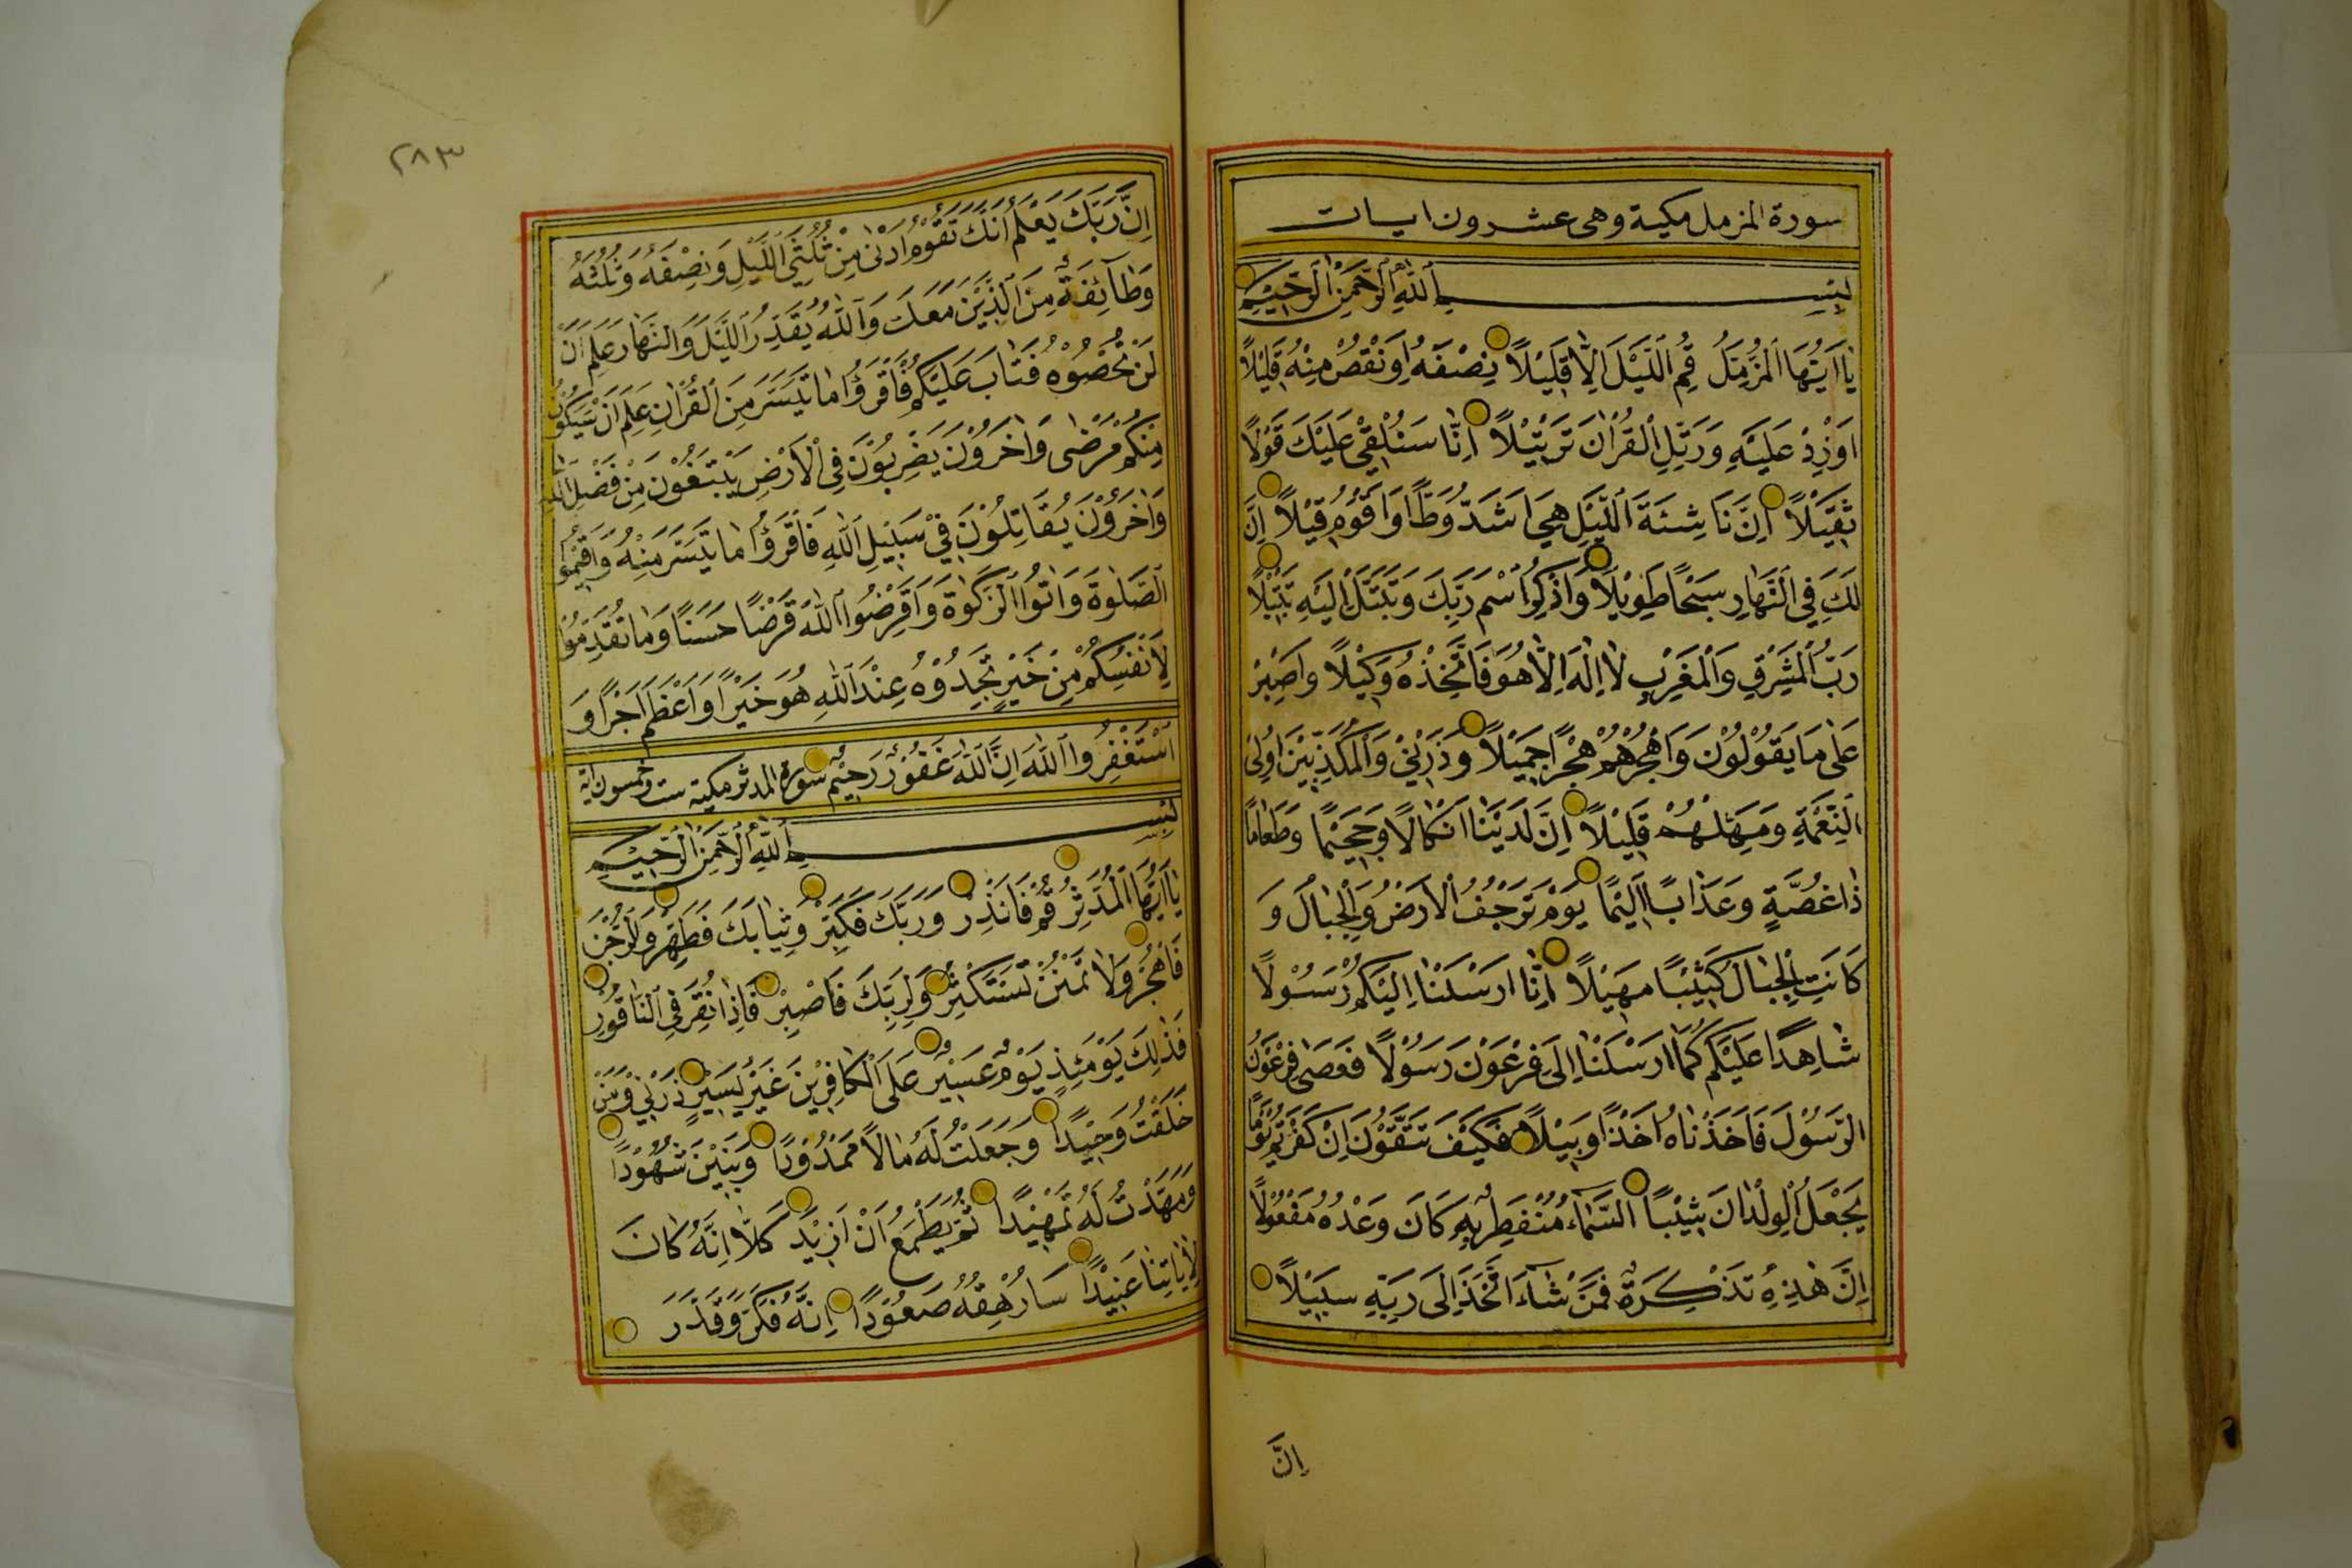 سورة المزمل مكية وهى عشرون ايات
بِسْمِ اللّٰهِ الرَّحْمٰنِ الرَّحِيْمِ
يَا اَيُّهَا الْمُزَّمِّلُ قُمِ الَّيْلَ اِلَّا قَلِيْلًا نِصْفَهُ اَوِ نْقُصْ مِنْهُ قَلِيْلًا
اَوْ زِدْ عَلَيْهِ وَرَتِّلِ الْقُرْاٰنَ تَرْتِيْلًا اِنَّا سَنُلْقِيْ عَلَيْكَ قَوْلًا
ثَقِيْلًا اِنَّ نَاشِئَةَ الَّيْلِ هِيَ اَشَدُّ وَطْأً وَاَقْوَمُ قِيْلًا اِنَّ
لَكَ فِي النَّهَارِ سَبْحًا طَوِيْلًا وَاذْكُرِ اسْمَ رَبِّكَ وَتَبَتَّلْ اِلَيْهِ تَبْتِيْلًا
رَبُّ الْمَشْرِقِ وَالْمَغْرِبِ لَا اِلٰهَ اِلَّا هُوَ فَاتَّخِذْهُ وَكِيْلًا وَاصْبِرْ
عَلٰى مَا يَقُوْلُوْنَ وَاهْجُرْهُمْ هَجْرًا جَمِيْلًا وَذَرْنِيْ وَالْمُكَذِّبِيْنَ اُولِى
النَّعْمَةِ وَمَهِّلْهُمْ قَلِيْلًا اِنَّ لَدَيْنَا اَنْكَالًا وَجَحِيْمًا وَطَعَامًا
ذَا غُصَّةٍ وَعَذَابًا اَلِيْمًا يَوْمَ تَرْجُفُ الْاَرْضُ وَالْجِبَالُ وَ
كَانَتِ الْجِبَالُ كَثِيْبًا مَهِيْلًا اِنَّا اَرْسَلْنَا اِلَيْكُمْ رَسُوْلًا
شَاهِدًا عَلَيْكُمْ كَمَا اَرْسَلْنَا اِلٰى فِرْعَوْنَ رَسُوْلًا فَعَصٰى فِرْعَوْنُ
الرَّسُوْلَ فَاَخَذْنَاهُ اَخْذًا وَبِيْلًا فَكَيْفَ تَتَّقُوْنَ اِنْ كَفَرْتُمْ يَوْمًا
يَجْعَلُ الْوِلْدَانَ شِيْبًا السَّمَاءُ مُنْفَطِرٌ بِهِ كَانَ وَعْدُهُ مَفْعُوْلًا
اِنَّ هٰذِهِ تَذْكِرَةٌ فَمَنْ شَآءَ اتَّخَذَ اِلٰى رَبِّهِ سَبِيْلًا
اِنَّ
٢٨٣
اِنَّ رَبَّكَ يَعْلَمُ اَنَّكَ تَقُوْمُ اَدْنٰى مِنْ ثُلُثَيِ الَّيْلِ وَنِصْفَهُ وَثُلُثَهُ
وَطَآئِفَةٌ مِنَ الَّذِيْنَ مَعَكَ وَاللّٰهُ يُقَدِّرُ الَّيْلَ وَالنَّهَارَ عَلِمَ اَنْ
لَنْ تُحْصُوْهُ فَتَابَ عَلَيْكُمْ فَاقْرَؤُا مَا تَيَسَّرَ مِنَ الْقُرْاٰنِ عَلِمَ اَنْ سَيَكُوْنُ
مِنْكُمْ مَرْضٰى وَاٰخَرُوْنَ يَضْرِبُوْنَ فِي الْاَرْضِ يَبْتَغُوْنَ مِنْ فَضْلِ اللّٰهِ
وَاٰخَرُوْنَ يُقَاتِلُوْنَ فِيْ سَبِيْلِ اللّٰهِ فَاقْرَؤُا مَا تَيَسَّرَ مِنْهُ وَاَقِيْمُوا
الصَّلٰوةَ وَاٰتُوا الزَّكٰوةَ وَاَقْرِضُوا اللّٰهَ قَرْضًا حَسَنًا وَمَا تُقَدِّمُوْا
لِاَنْفُسِكُمْ مِنْ خَيْرٍ تَجِدُوْهُ عِنْدَ اللّٰهِ هُوَ خَيْرًا وَاَعْظَمَ اَجْرًا وَ
اسْتَغْفِرُوا اللّٰهَ اِنَّ اللّٰهَ غَفُوْرٌ رَحِيْمٌ سورة المدثر مكية ست وخمسون اية
بِسْمِ اللّٰهِ الرَّحْمٰنِ الرَّحِيْمِ
يَا اَيُّهَا الْمُدَّثِّرُ قُمْ فَاَنْذِرْ وَرَبَّكَ فَكَبِّرْ وَثِيَابَكَ فَطَهِّرْ وَالرُّجْزَ
فَاهْجُرْ وَلَا تَمْنُنْ تَسْتَكْثِرُ وَلِرَبِّكَ فَاصْبِرْ فَاِذَا نُقِرَ فِي النَّاقُوْرِ
فَذٰلِكَ يَوْمَئِذٍ يَوْمٌ عَسِيْرٌ عَلَى الْكَافِرِيْنَ غَيْرُ يَسِيْرٍ ذَرْنِيْ وَمَنْ
خَلَقْتُ وَحِيْدًا وَجَعَلْتُ لَهُ مَالًا مَمْدُوْدًا وَبَنِيْنَ شُهُوْدًا
وَمَهَّدْتُ لَهُ تَمْهِيْدًا ثُمَّ يَطْمَعُ اَنْ اَزِيْدَ كَلَّا اِنَّهُ كَانَ
لِاٰيَاتِنَا عَنِيْدًا سَاُرْهِقُهُ صَعُوْدًا اِنَّهُ فَكَّرَ وَقَدَّرَ